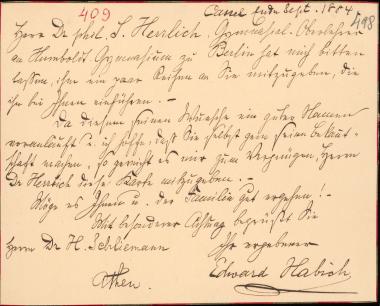 409
Cassel Ende Sept. 1884
498
Herr Dr phil. S. Herrlich, Gymnasial-Oberlehrer
am Humboldt Gymnasium zu Berlin hat mich bitten
lassen, ihm ein paar Zeilen an Sie mitzugeben, die
ihn bei Ihnen einführen. –
Da diesem seinem Wunsche ein guter Namen
vorausläuft u. ich hoffe, daß Sie selbst gern seine Bekannt-
schaft machen, so gereicht es mir zum Vergnügen, Herrn
Dr Herrlich diese Karte mitzugeben. –
Möge es Ihnen u. der Familie gut ergehen! –
Mit besonderer Achtung begrüßt Sie
Herrn Dr H. Schliemann
Ihr ergebener
Athen.
Edward Habich